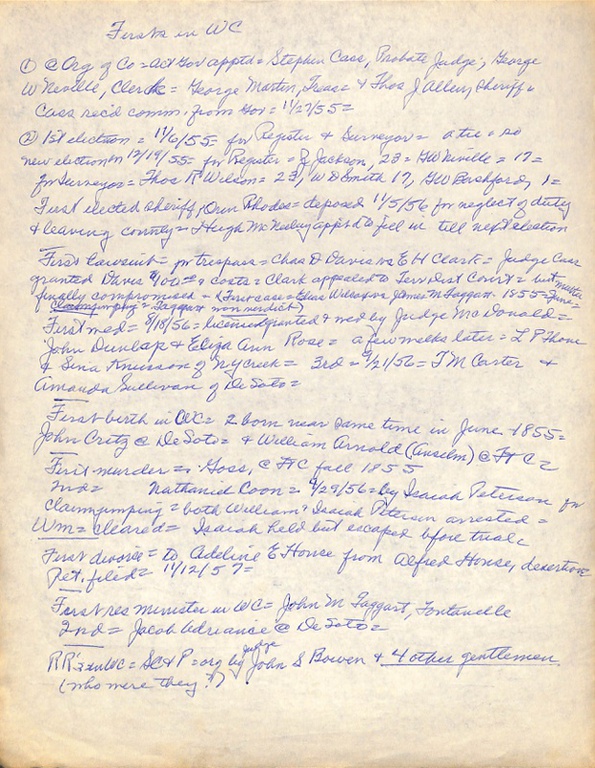 Firsts in WC
① @ Org of Co = act Gov apptd = Stephen Cass, Probate Judge, George
W Neville, Clerk = George Martin, Treas = & Thos J Allen, Sheriff =
Cass rec'd comm. from Gov = 11/27/55 =
② 1st election = 11/6/55 = for Register & Surveyor = a tie = so
new election on 12/19/55 = for Register = Jackson, 23 = GW Neville = 17 =
for Surveyor = Thos R Wilson = 23, W D Smith 17, GW Boshford, 1 =
First elected sheriff, Orin Rhodes = deposed 11/5/56 for neglect of duty
& leaving county = Hugh McNeeley apptd to fill in till next election
First lawsuit = for trespass = Chas D Davis vs E H Clark = Judge Cass
granted Davis & costs = Clark appealed to Terr Dist Court = but matter
finally compromised = (First case = Elias Wilson vs James M Taggart 1855 = June =
Claimjumping = Taggart won verdict)
First wed = 8/18/56 = license granted & wed by Judge McDonald =
John Dunlap & Eliza Ann Rose = a few weeks later = L P Thone
& Sina Knusson of NY creek = 3rd = 9/21/56 = T M Carter &
Amanda Sullivan of De Soto =
First birth in WC = 2 born near same time in June 1855 =
John Critz @ De Soto = & William Arnold (Anselm) @ Ft C =
First murder = Goss, @ Ft C fall 1855
2nd = Nathaniel Coon = 9/29/56 = by Isaiah Peterson for
claimjumping = both William & Isaiah Peterson arrested =
Wm = cleared = Isaiah held but escaped before trial =
First divorce = to Adeline E House from Alfred House, desertion
Pet. filed = 11/12/57 =
First res minister in WC = John M Taggart, Fontanelle
2nd = Jacob Adriance @ De Soto =
RR's in WC = SC & P = org by Judge John S Bowen & 4 other gentlemen
(who were they?)